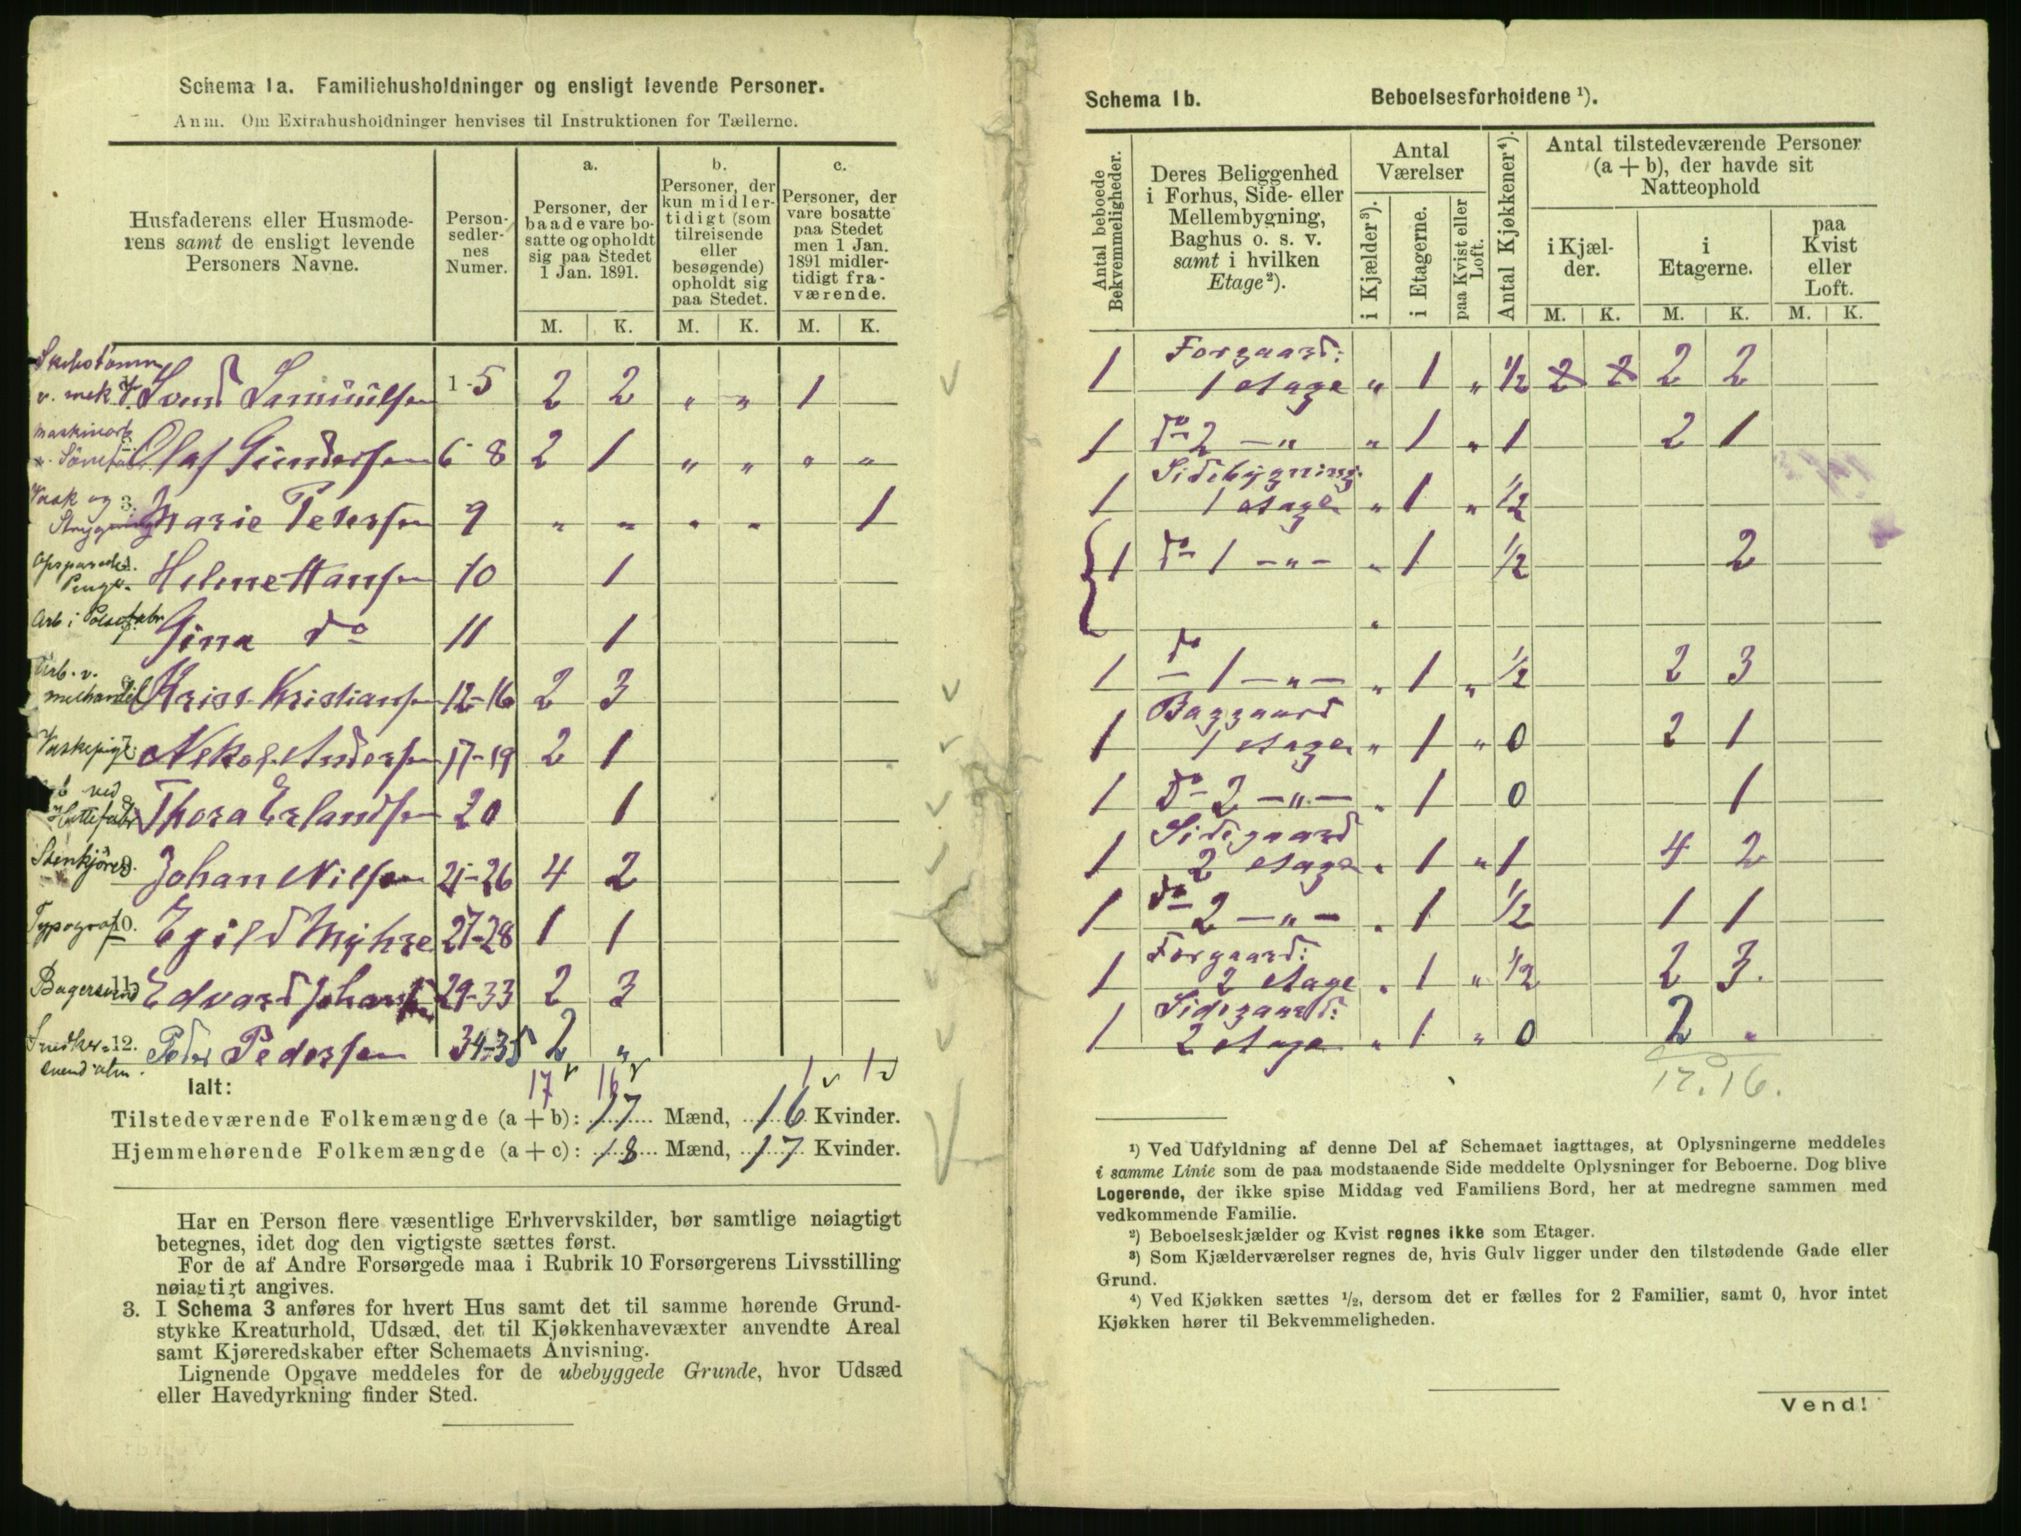 Schema 1a. Familiehusholdninger og ensligt levende Personer.
Anm. Om Extrahusholdninger henvises til Instruktionen for Tællerne.
Husfaderens eller Husmoderens samt de ensligt levende Personers Navne.
Personsedlernes Numer.
a.
Personer, der baade vare bosatte og opholdt sig paa Stedet 1 Jan. 1891.
b.
Personer, der kun midlertidigt (som tilreisende eller besøgende) opholdt sig paa Stedet.
c.
Personer, der vare bosatte paa Stedet men 1 Jan. 1891 midlertidigt fraværende.
M. K. M. K. M. K.
v. mek. Svend Samuulsen 1-5 2 2 „ „ 1
Olaf Gundersen 6-8 2 1 „ „ „ „
Vask og Strygning 3. Marie Petersen 9 „ „ „ „ 1
Opsparede Penge Helene Hansen 10 1
Arb i Polsefabr Gina do 11 1
Arb. v. melhandel Krist. Kristiansen 12-16 2 3
Vaskepige Andersen 17-19 2 1
ved Thora Erlandsen 20 1
Stenkjörer 9. Johan Nilsen 21-26 4 2
Typograf 10. Egild Myhre 27-28 1 1
Bagersvend 11. Edvard Johansen 29-33 2 3
Snedkersvend 12. Peder Pedersen 34-35 2 „
Ialt: 17 16 1 1
Tilstedeværende Folkemængde (a + b): 17 Mænd, 16 Kvinder.
Hjemmehørende Folkemængde (a + c): 18 Mænd, 17 Kvinder.
Har en Person flere væsentlige Erhvervskilder, bør samtlige nøiagtigt
betegnes, idet dog den vigtigste sættes først.
For de af Andre Forsørgede maa i Rubrik 10 Forsørgerens Livsstilling
nøiagtigt angives.
3. I Schema 3 anføres for hvert Hus samt det til samme hørende Grund-
stykke Kreaturhold, Udsæd, det til Kjøkkenhavevæxter anvendte Areal
samt Kjøreredskaber efter Schemaets Anvisning.
Lignende Opgave meddeles for de ubebyggede Grunde, hvor Udsæd
eller Havedyrkning finder Sted.
Schema 1b. Beboelsesforholdene ¹).
Antal beboede Bekvemmeligheder.
Deres Beliggenhed i Forhus, Side- eller Mellembygning, Baghus o. s. v. samt i hvilken Etage²).
Antal Værelser
i Kjælder³).
i Etagerne.
paa Kvist eller Loft.
Antal Kjøkkener⁴).
Antal tilstedeværende Personer (a + b), der havde sit Natteophold
i Kjælder.
i Etagerne.
paa Kvist eller Loft.
M. K. M. K. M. K.
Forgaard:
1 1 etage „ 1 „ 1/2 2 2 2 2
1 do 2 — „ „ 1 „ 1 2 1
Sidebygning.
1 1 etage „ 1 „ 1/2
1 do 1 — „ — „ 1 1/2 2
„
1 do 1 — „ — „ 1 „ 1/2 2 3
Baggaard
1 1 etage „ 1 „ 0 2 1
1 do 2 — „ — „ 1 0 1
Sidegaard
1 2 etage „ 1 „ 1 4 2
1 do 2 — „ — „ 1 1/2 1 1
Forgaard:
1 2 etage „ 1 „ 1/2 2 3
Sidegaard:
1 2 etage „ 1 „ 0 2 „
17. 16.
¹) Ved Udfyldning af denne Del af Schemaet iagttages, at Oplysningerne meddeles
i samme Linie som de paa modstaaende Side meddelte Oplysninger for Beboerne. Dog blive
Logerende, der ikke spise Middag ved Familiens Bord, her at medregne sammen med
vedkommende Familie.
²) Beboelseskjælder og Kvist regnes ikke som Etager.
³) Som Kjælderværelser regnes de, hvis Gulv ligger under den tilstødende Gade eller
Grund.
⁴) Ved Kjøkken sættes ¹/₂, dersom det er fælles for 2 Familier, samt 0, hvor intet
Kjøkken hører til Bekvemmeligheden.
Vend!